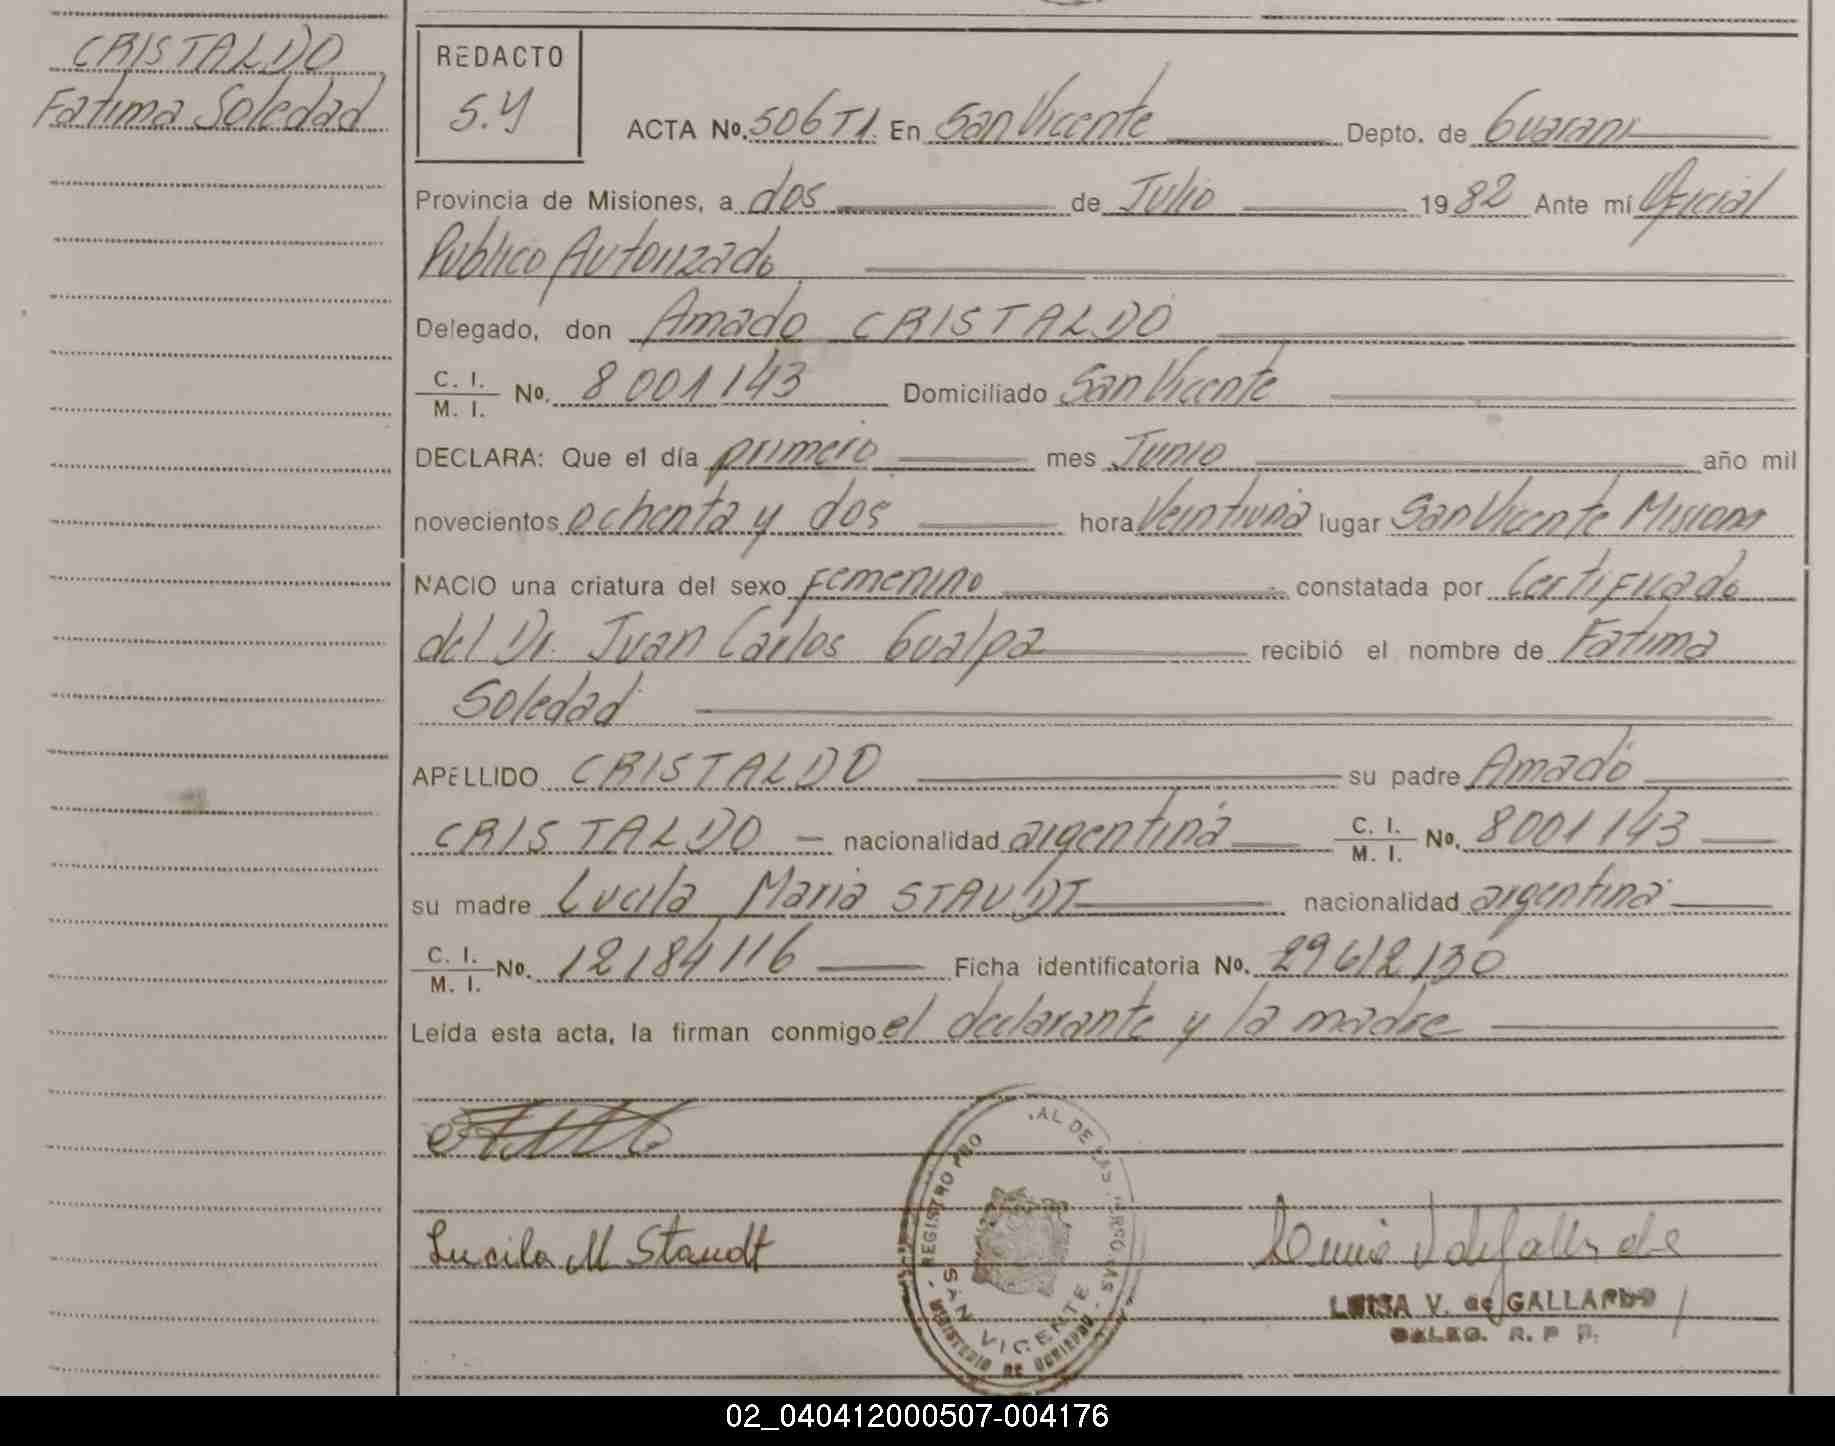 CRISTALDO
Fatima Soledad
REDACTO
S.Y
ACTA No. 506 T1. En San Vicente Depto. de Guarani
Provincia de Misiones, a dos de Julio 1982 Ante mí Oficial
Publico Autorizado
Delegado, don Amado CRISTALDO
C. I. / M. I. No. 8001143 Domiciliado San Vicente
DECLARA: Que el día primero mes Junio año mil
novecientos ochenta y dos hora Veintiuna lugar San Vicente Misiones
NACIO una criatura del sexo Femenino constatada por Certificado
del Dr. Juan Carlos Gualpa recibió el nombre de Fatima
Soledad
APELLIDO CRISTALDO su padre Amado
CRISTALDO — nacionalidad argentina C. I. / M. I. No. 8001143
su madre Lucila Maria STAUDT nacionalidad argentina
C. I. / M. I. No. 12184116 Ficha identificatoria No. 29612130
Leída esta acta, la firman conmigo el declarante y la madre
Lucila M Staudt
REGISTRO AL DE LAS PERSONAS
SAN VICENTE
MINISTERIO DE GOBIERNO
LUISA V. de GALLARDO
DELEG. R. P. P.
02_040412000507-004176